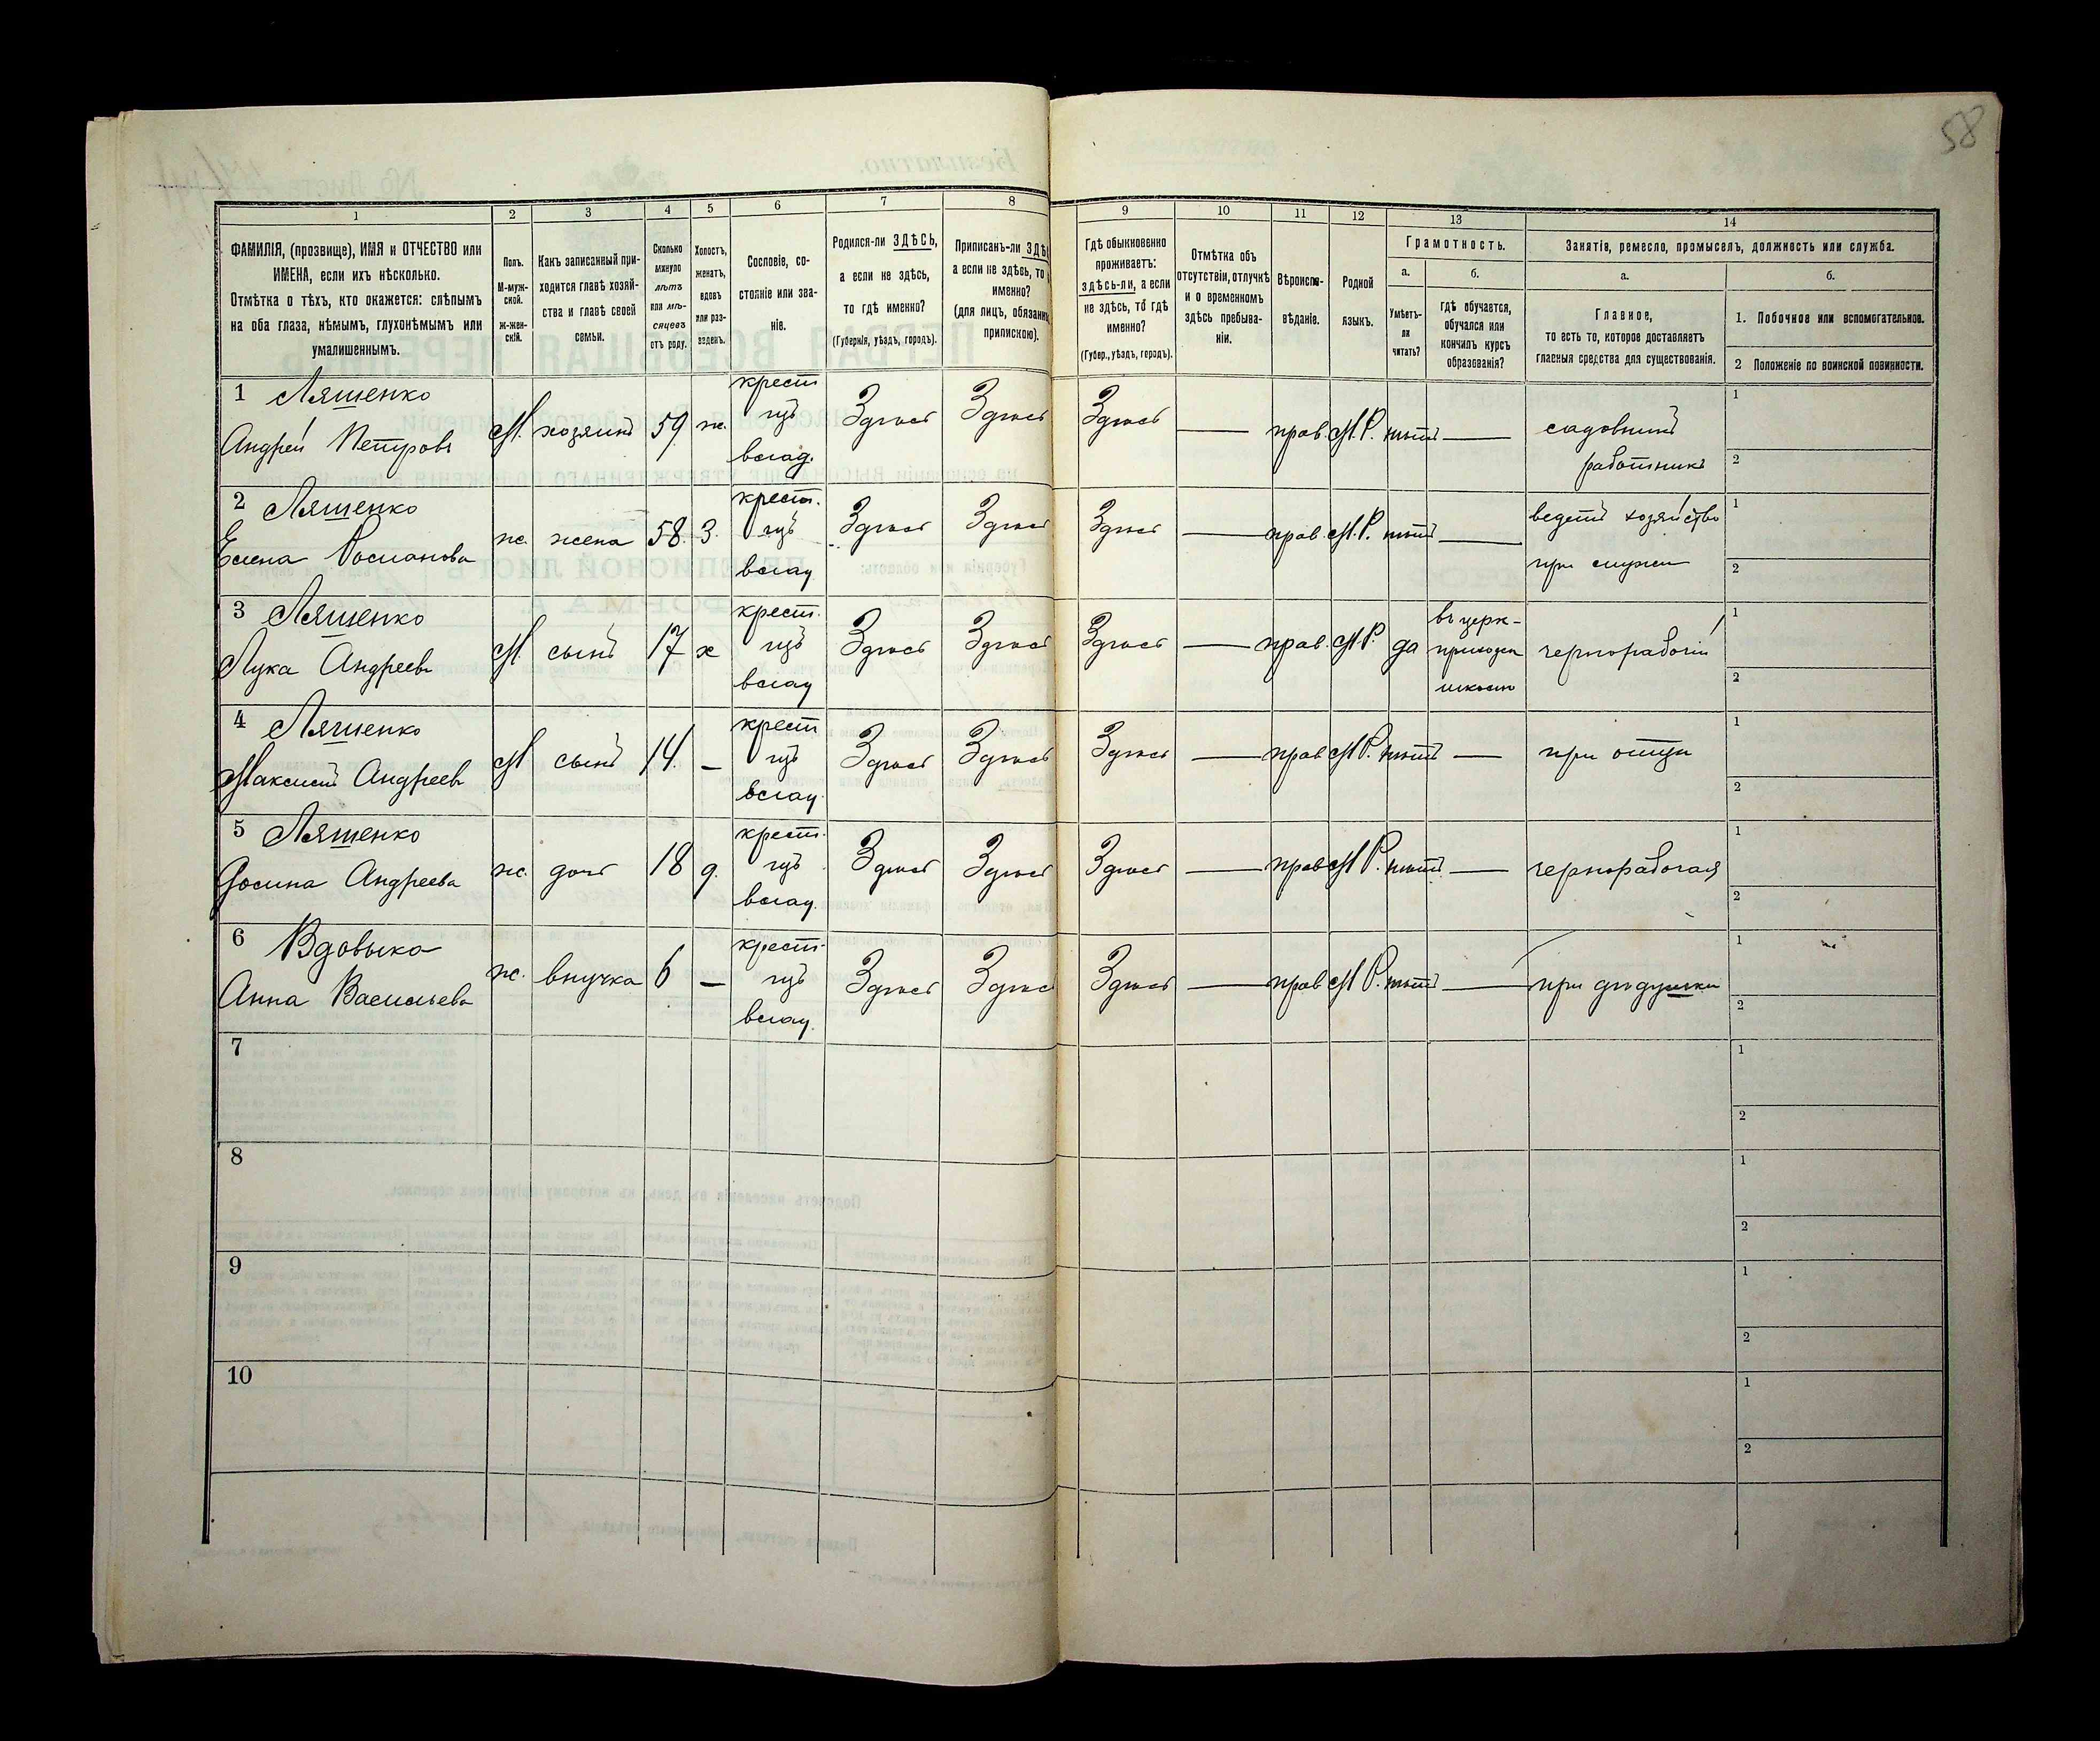 58
1 2 3 4 5 6 7 8 9 10 11 12 13 14
ФАМИЛІЯ, (прозвище), ИМЯ и ОТЧЕСТВО или
ИМЕНА, если ихъ нѣсколько.
Отмѣтка о тѣхъ, кто окажется: слѣпымъ
на оба глаза, нѣмымъ, глухонѣмымъ или
умалишеннымъ.
Полъ.
М-муж-
ской.
ж-жен-
скій.
Какъ записанный при-
ходится главѣ хозяй-
ства и главѣ своей
семьи.
Сколько
минуло
лѣтъ
или мѣ-
сяцевъ
отъ роду.
Холостъ,
женатъ,
вдовъ
или раз-
веденъ.
Сословіе, со-
стояніе или зва-
ніе.
Родился-ли ЗДѢСЬ,
а если не здѣсь,
то гдѣ именно?
(Губернія, уѣздъ, городъ).
Приписанъ-ли ЗДѢ
а если не здѣсь, то
именно?
(для лицъ, обязанн
припискою).
Гдѣ обыкновенно
проживаетъ:
здѣсь-ли, а если
не здѣсь, то гдѣ
именно?
(Губер., уѣздъ, городъ).
Отмѣтка объ
отсутствіи, отлучкѣ
и о временномъ
здѣсь пребыва-
ніи.
Вѣроиспо-
вѣданіе.
Родной
языкъ.
Грамотность.
а.
Умѣетъ-
ли
читать?
б.
гдѣ обучается,
обучался или
кончилъ курсъ
образованія?
Занятіе, ремесло, промыселъ, должность или служба.
а.
Главное,
то есть то, которое доставляетъ
главныя средства для существованія.
б.
1. Побочное или вспомогательное.
2 Положеніе по воинской повинности.
1 Ляшенко
Андрей Петровъ
М. хозяинъ 59 ж.
крест
изъ
влад.
Здѣсь Здѣсь Здѣсь — прав. М.Р. нѣтъ —
садовный
работникъ
1
2
2 Ляшенко
Елена
ж. жена 58. З.
крест.
изъ
влад
Здѣсь Здѣсь Здѣсь — прав. М.Р. нѣтъ —
ведетъ хозяйство
при мужѣ
1
2
3 Ляшенко
Лука Андреевъ
М сынъ 17 х
крест.
изъ
влад
Здѣсь Здѣсь Здѣсь — прав. М.Р. да
въ церк-
приходск
школѣ
чернорабочій
1
2
4 Ляшенко
Максимъ Андреевъ
М сынъ 14. —
крест
изъ
влад.
Здѣсь Здѣсь Здѣсь — прав М Р. нѣтъ — при отцѣ
1
2
5 Ляшенко
Андреева
ж. дочь 18 д.
крест.
изъ
влад.
Здѣсь Здѣсь Здѣсь — прав М Р. нѣтъ — чернорабочая
1
2
6 Вдовыка
Анна Васильева
ж. внучка 6 —
крест.
изъ
влад.
Здѣсь Здѣсь Здѣсь — прав М Р. нѣтъ — при дѣдушкѣ
1
2
7
1
2
8
1
2
9
1
2
10
1
2